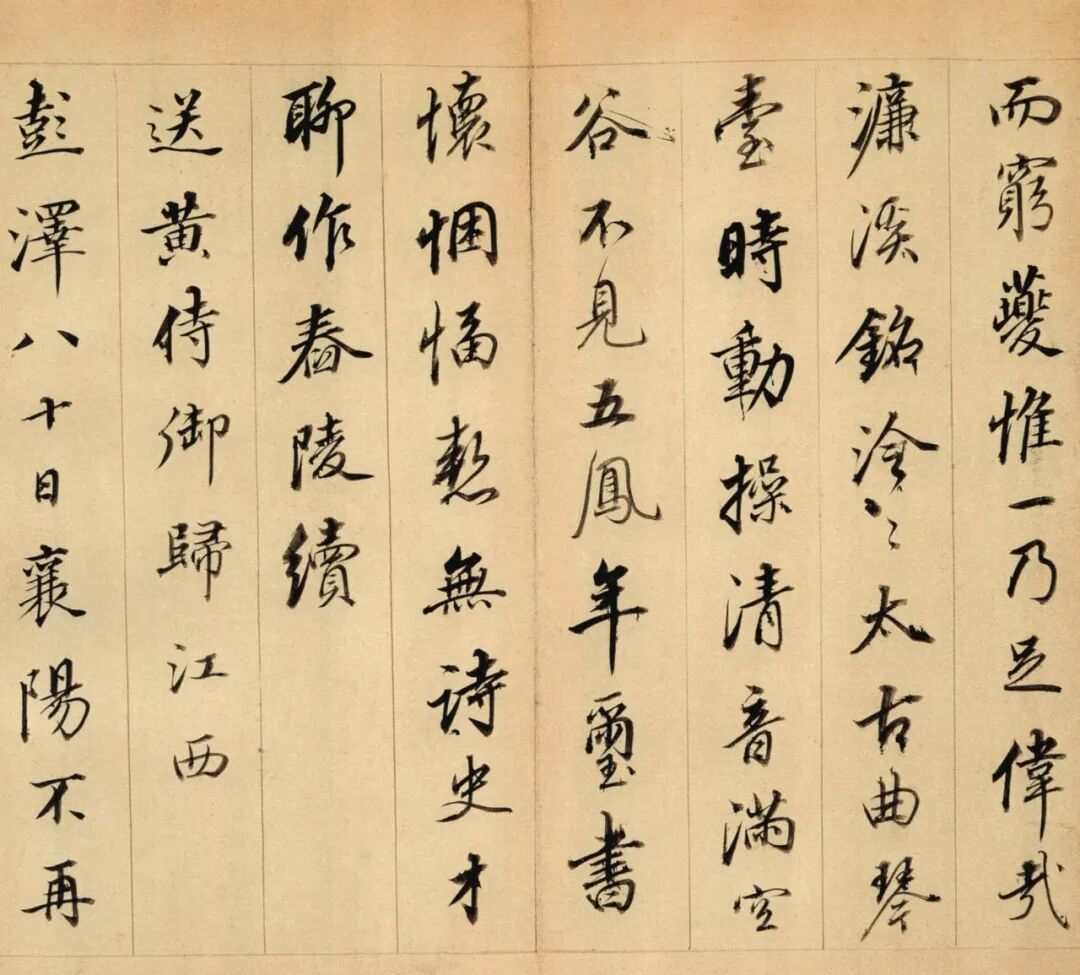 而窮夔惟一乃足偉哉
濂溪銘泠〻太古曲琴
臺時動操清音滿空
谷不見五鳳年璽書
懷悃愊愁無詩史才
聊作舂陵續
送黄侍御歸江西
彭澤八十日襄陽不再